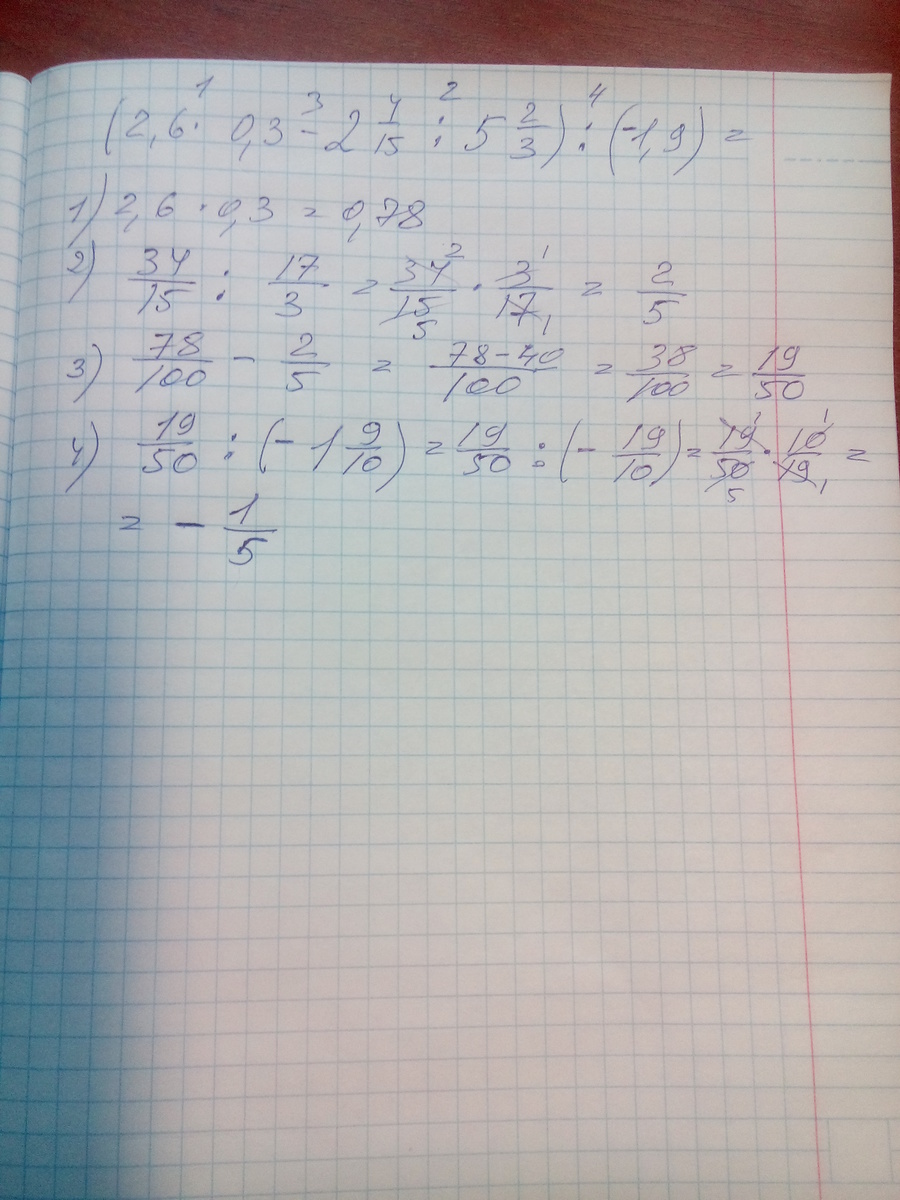 (2,6 · 0,3 - 2 4/15 : 5 2/3) : (-1,9) =
1) 2,6 · 0,3 = 0,78
2) 34/15 : 17/3 = 34/15 · 3/17 = 2/5
3) 78/100 - 2/5 = 78-40/100 = 38/100 = 19/50
4) 19/50 : (- 1 9/10) = 19/50 : (- 19/10) = 19/50 · 10/19 =
= - 1/5